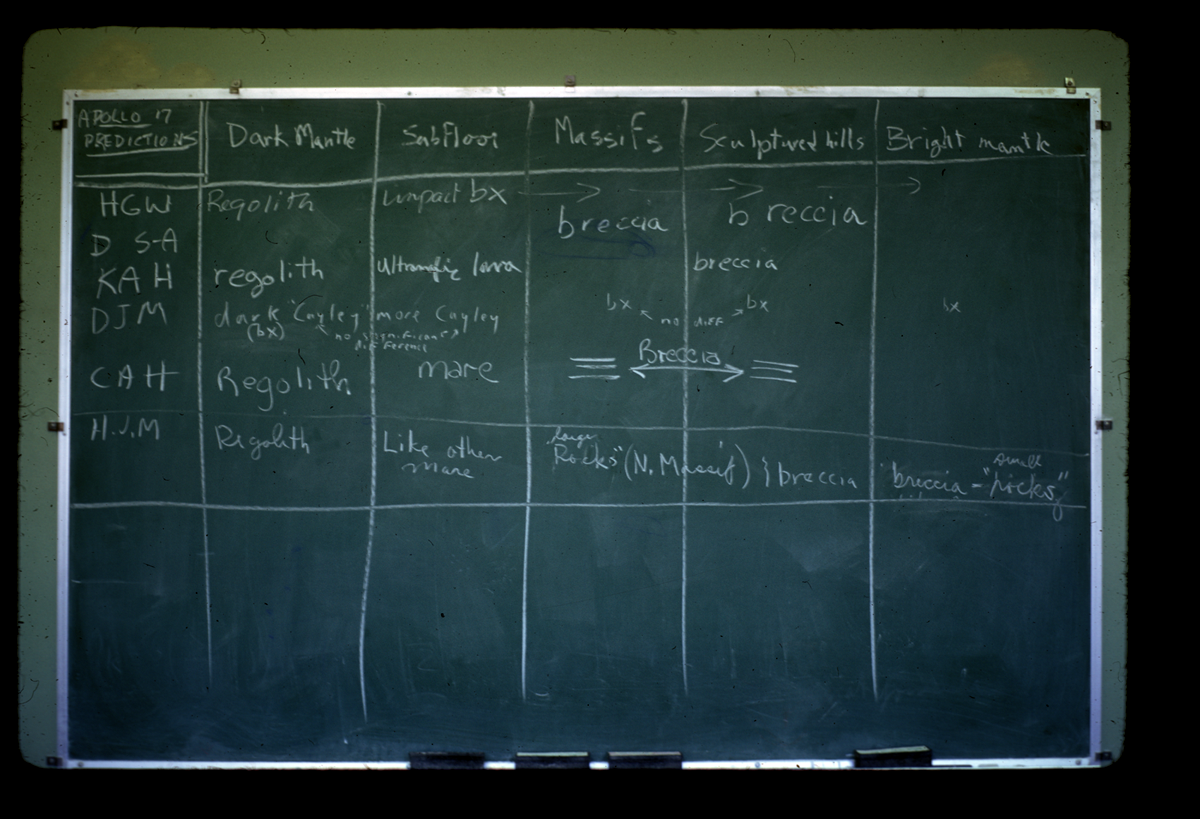 APOLLO 17
PREDICTIONS
Dark Mantle
Subfloor
Massifs
Sculptured hills
Bright mantle
HGW
Regolith
impact bx
breccia
breccia
D S-A
KAH
regolith
Ultramafic lava
breccia
DJM
dark "Cayley"
(bx)
more Cayley
no significant
difference
bx
no diff
bx
bx
CAH
Regolith
mare
Breccia
H.J.M
Regolith
Like other
mare
large
"Rocks" (N. Massif) } breccia
small
breccia - "picks"